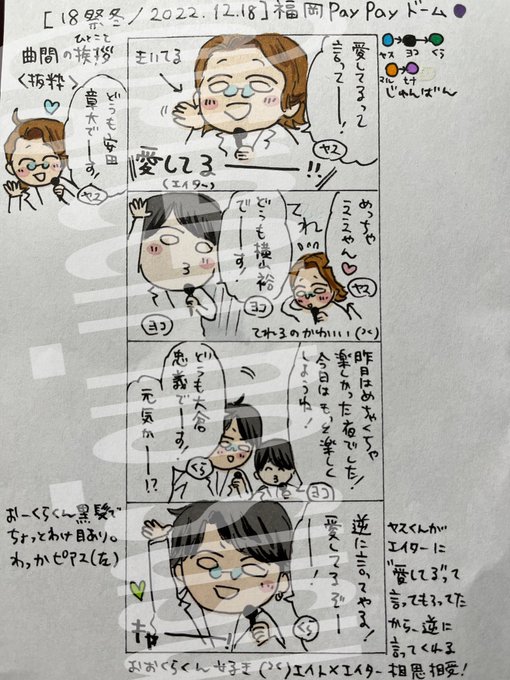 [18祭冬/2022.12.18]福岡PayPayドーム
ひとこと
曲間の挨拶
<抜粋>
どうも安田
章大でーす!
ヤス
きいてる
愛してるって
言ってー!
ヤス
愛してるー!!
(エイター)
ヤス
ヨコ
くら
マル
ヒナ
じゅんばん
めっちゃ
ええやん
ヤス
てれ
どうも横山裕
でーす!
ヨコ
てれるのかわいい
昨日はめちゃくちゃ
楽しかった夜でした!
今日はもっと楽しく
しようね!
ヨコ
どうも大倉
忠義でーす!
元気かー!?
くら
逆に言ってやる!
愛してるぞー!
くら
キャー
おーくらくん黒髪で
ちょっとわけ目あり。
わっかピアス(左)
ヤスくんが
エイターに
"愛してる"って
言ってもろってた
から、逆に
言ってくれる
おおくらくん好き
エイト×エイター相思相愛!